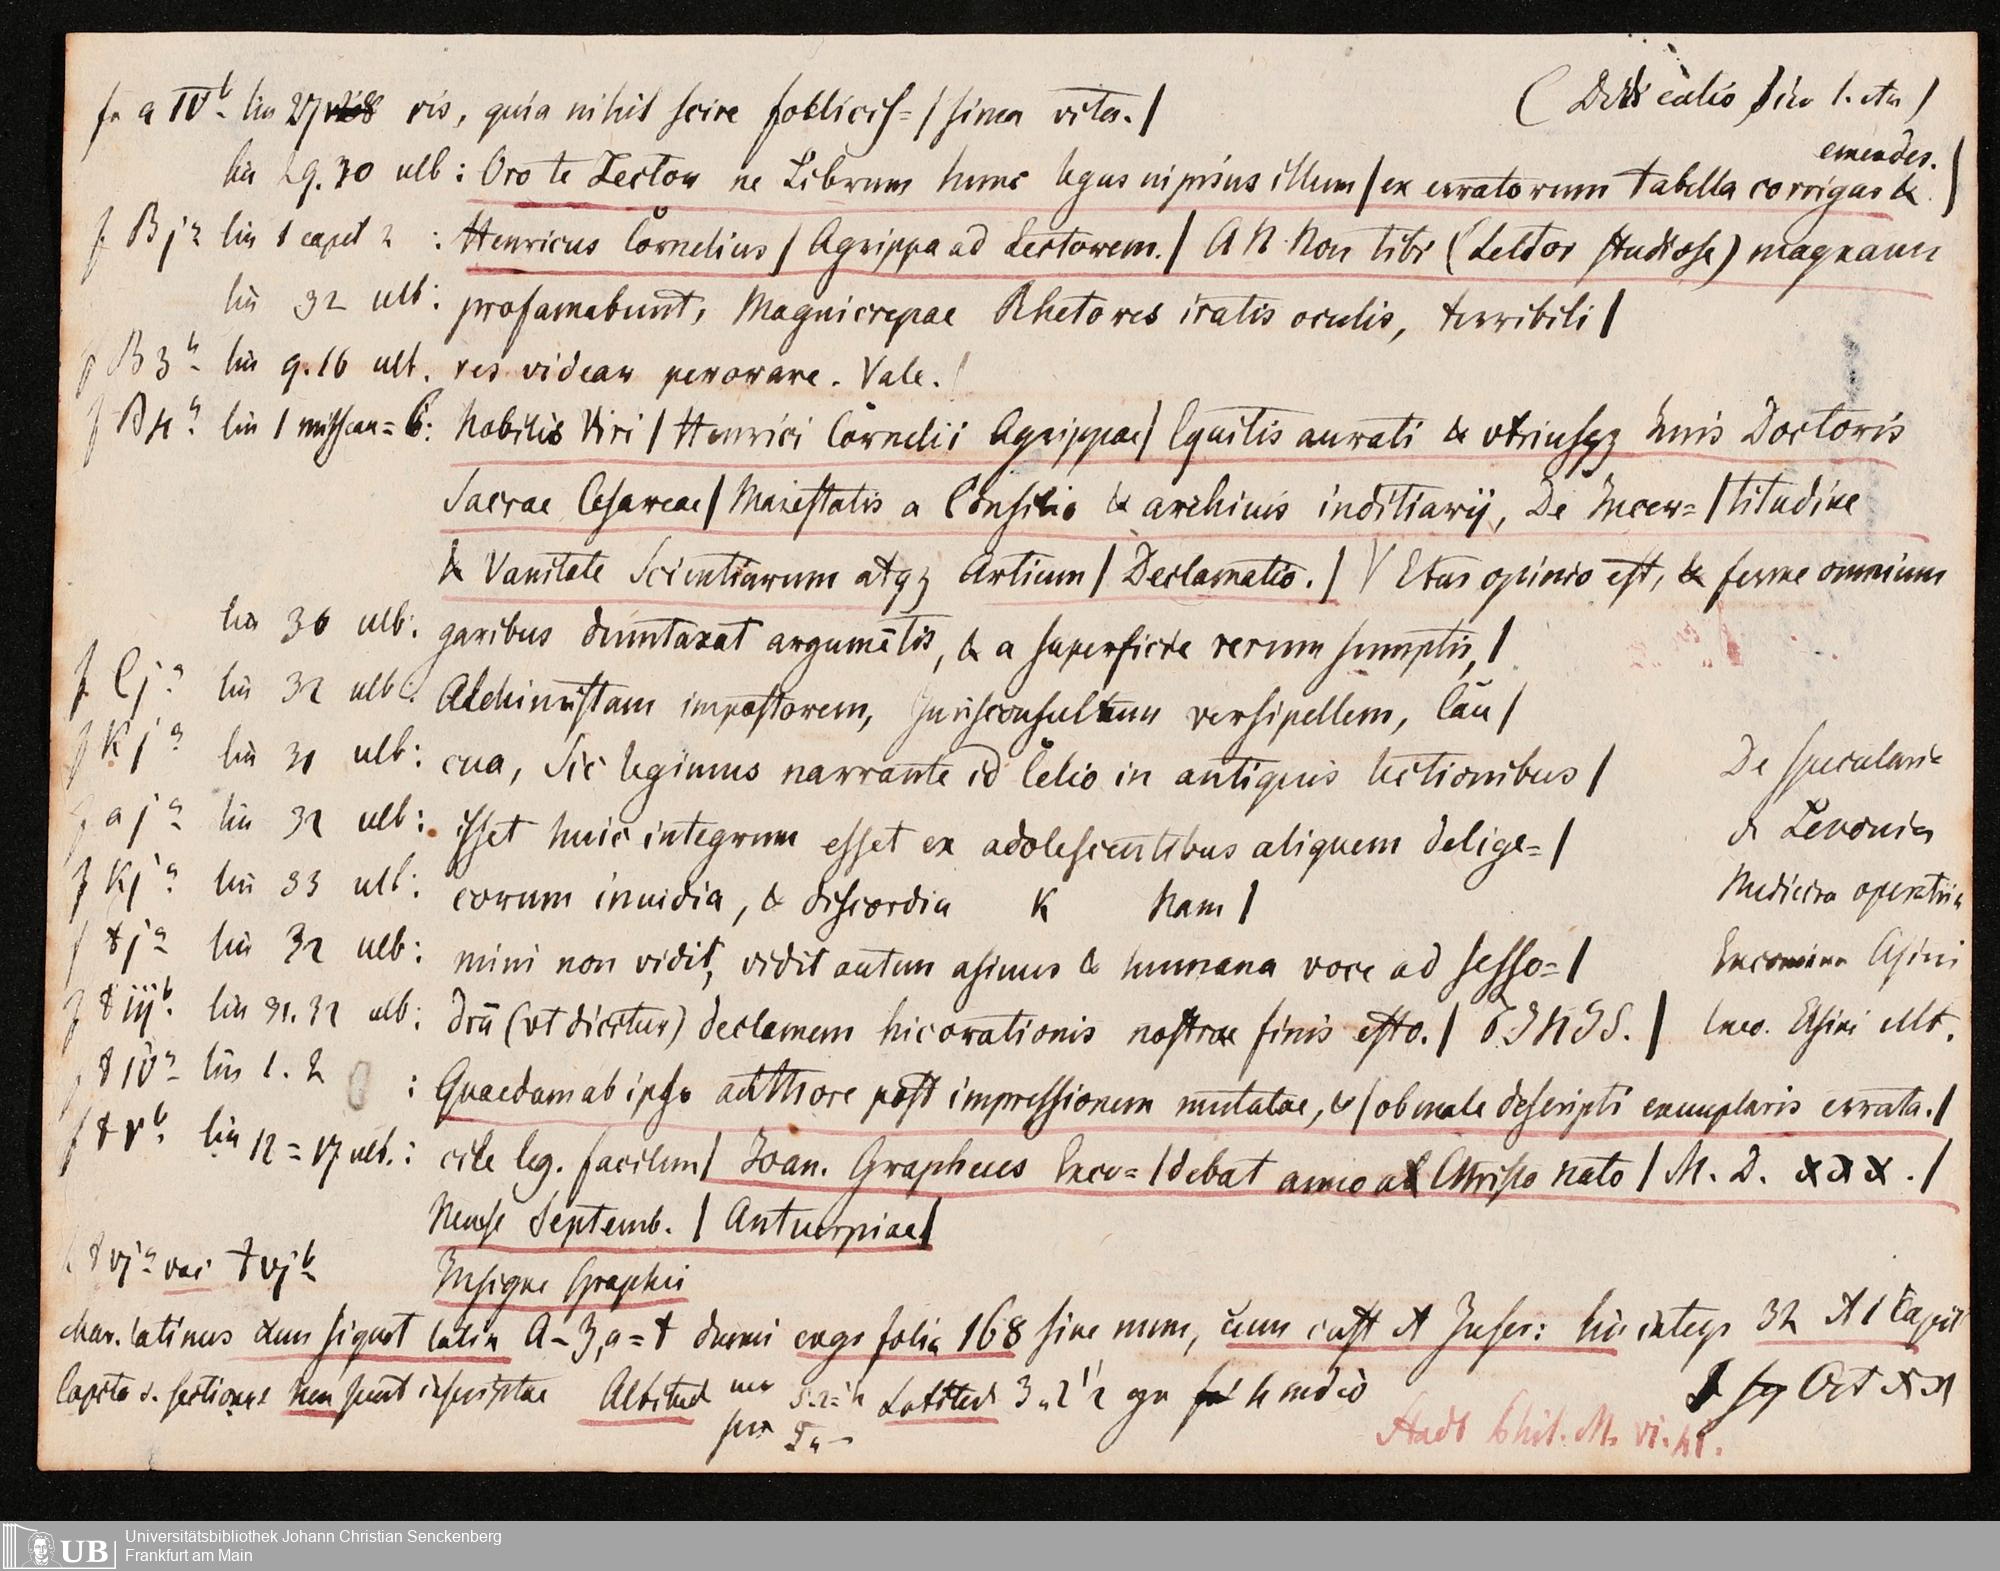 f a IV b lin 27 ris, quia nihil scire foelicis= / sima vita. / (Dedicatio sive l. etn)
lin 29. 30 ult: Oro te Lector ne Librum hunc legas ni prius illum / ex erratorum tabella corrigas & emendes. /
f B j a lin 1 capit 2 : Henricus Cornelius / Agrippa ad Lectorem. / AN Non tibi (Lector studiose) magnanı
lin 32 ult: profamabunt, Magnicrepae Rhetores iratis oculis, terribili /
f B 3 b lin 9. 16 ult. res videar perorare. Vale. /
f B 4 a lin 1 = 6: Nobilis Viri / Henrici Cornelii Agrippae / Equitis aurati & vtriusqz Iuris Doctoris
Sacrae Cesareae / Maiestatis a Consilio & archiuis inditiarij, De Incer= / titudine
& Vanitate Scientiarum atqz Artium / Declamatio. / V Etus opinio est, & ferme omnium
lin 36 ult. garibus dumtaxat argumētis, & a superficie rerum sumptis, /
f C j a lin 32 ult: Alchimistam impostorem, Iurisconsultum versipellem, Cau /
f K j a lin 31 ult: cua, Sic legimus narrante id Celio in antiquis lectionibus / De specularia
f a j a lin 32 ult: isset huic integrum esset ex adolescentibus aliquem delige= / d Lenonia
f k j a lin 33 ult: eorum inuidia, & discordia K Nam / Medicina operatrix
f t j a lin 32 ult: mini non vidit, vidit autem asinus & humana voce ad sesso= / Encomium Asini
f t iij b. lin 31. 32 ult: drū (vt dicitur) declamem hic orationis nostrae finis esto. / FINIS. / Enco. Asini ult.
f t iv a lin 1. 2 : Quaedam ab ipso authore post impressionem mutatae, & / ob male descripti exemplaris errata. /
f t v b. lin 12 = 17 ult.: cile leg. facilem / Ioan. Grapheus Excu= / debat anno a Christo nato / M. D. XXX . /
Mense Septemb. / Antuerpiae /
f t vj a vac t vj b Insigne Graphei
char. latinus signat latin A - 3, a = t ergo folia 168 sine num, cum cust & Inscr: lin integr 32 & 1 Capit
Capita & sectiones non sunt inscriptae Altitud Latitud 3
Stadt Phil. M. VI.
Universitätsbibliothek Johann Christian Senckenberg
UB Frankfurt am Main